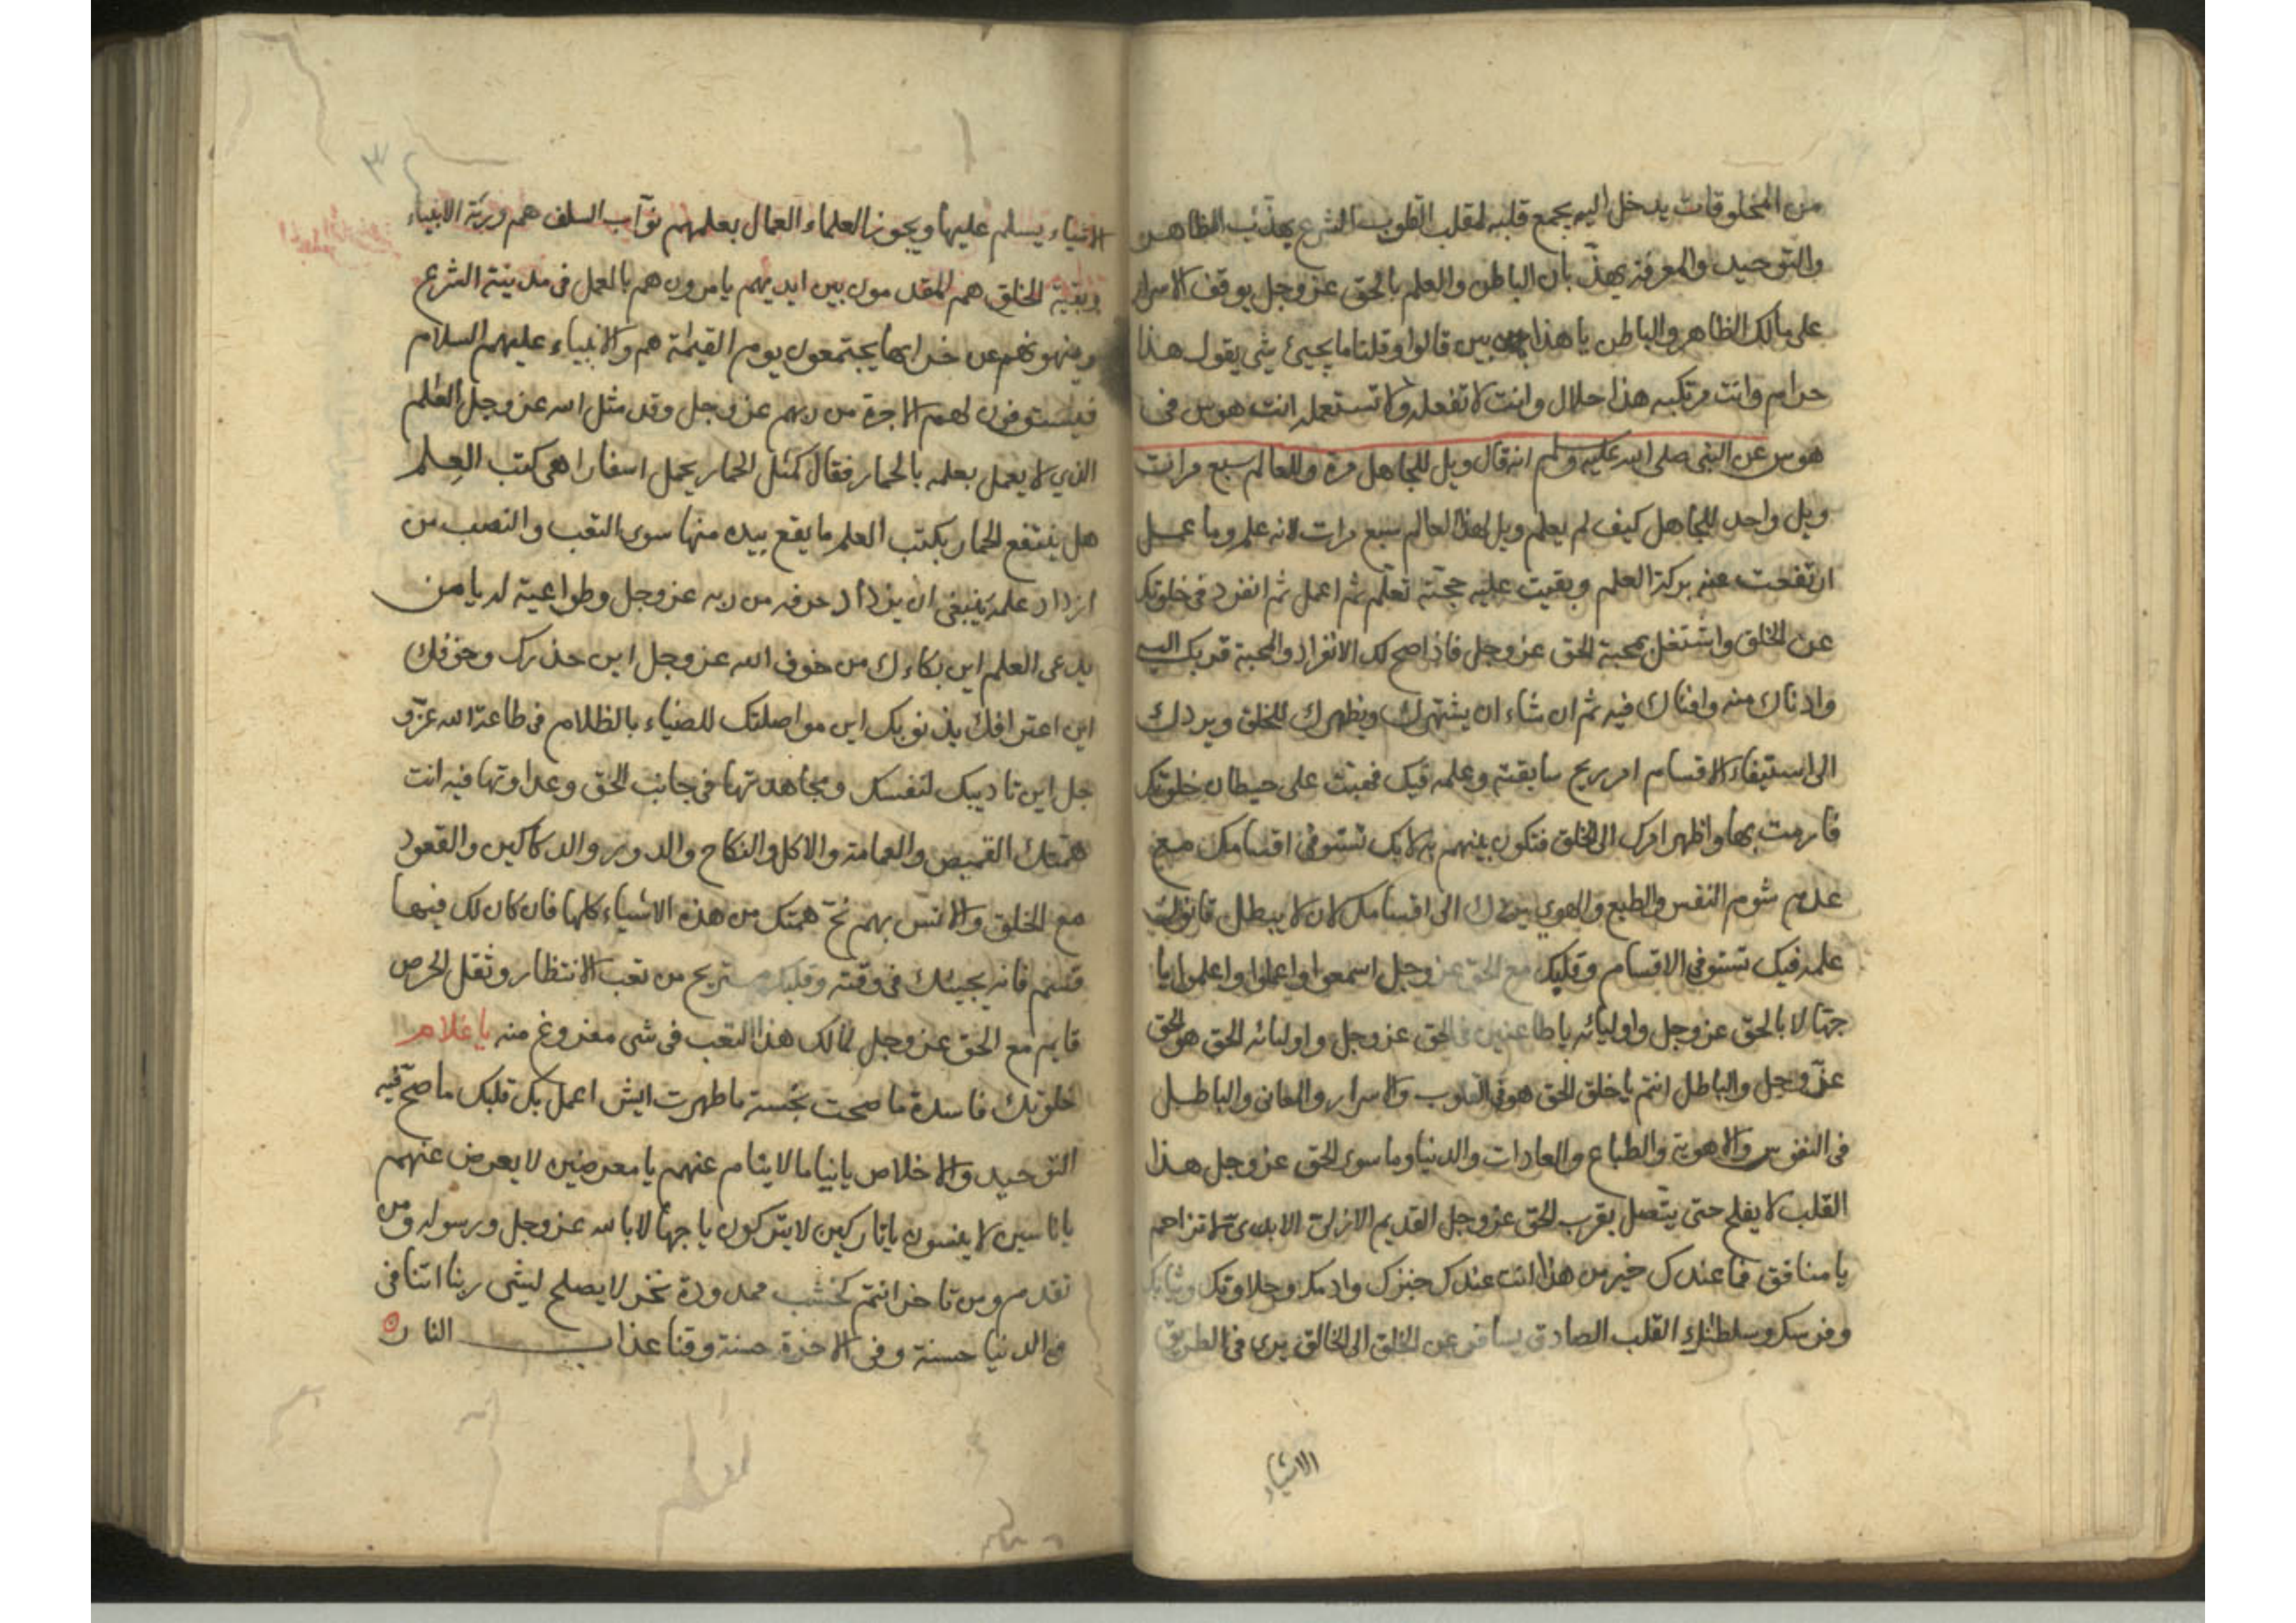 من المخلوقات يدخل اليه يجمع قلبه لمقلب القلوب الشرع يهذب الظاهر
والتوحيد والمعرفة يهذبان الباطن والعلم بالحق عز وجل يوقف الاسرار
على مالك الظاهر والباطن يا هذا بين قالوا وقلنا ما يجيئ شي يقول هذا
حرام وانت مرتكبه هذا حلال وانت لا تفعله ولا تستعمله انت هوس في
هوس عن النبى صلى الله عليه وسلم انه قال ويل للجاهل مرة وللعالم سبع مرات
ويل واحد للجاهل كيف لم يعلم ويل لهذا العالم سبع مرات لانه علم وما عمل
ارتفعت عنه بركة العلم وبقيت عليه حجته تعلم ثم اعمل ثم انفرد في خلوتك
عن الخلق واشتغل بمحبة الحق عز وجل فاذا صح لك الانفراد والمحبة قربك اليه
وادناك منه وافناك فيه ثم ان شاء ان يشهرك ويظهرك للخلق ويردك
الى استيفاء الاقسام امر ريح سابقته وعلمه فيك فهبت على حيطان خلوتك
فارمت بها واظهر امرك الى الخلق فتكون بينهم به لا بك تستوفى اقسامك مع
عدم شوم النفس والطبع والهوى يردك الى اقسامك لان لا يبطل قانون
علمه فيك تستوفى الاقسام وقلبك مع الحق عز وجل اسمعوا واعلموا واعملوا يا
جهالا بالحق عز وجل واوليائه يا طاعنين في الحق عز وجل واوليائه الحق هو الحق
عز وجل والباطل انتم يا خلق الحق هو في القلوب والاسرار والمعانى والباطل
فى النفوس والاهوية والطباع والعادات والدنيا وما سوى الحق عز وجل هذا
القلب لا يفلح حتى يتصل بقرب الحق عز وجل القديم الازلى الابدى لا تزاحم
يا منافق فما عندك خير من هذا انت عندك خبزك وادمك وحلاوتك وثيابك
وفرسك وسلطنتك القلب الصادق يسافر عن الخلق الى الخالق يرى في الطريق
الاشياء
الاشياء يسلم عليها ويجوز العلماء العمال بعلمهم نواب السلف هم ورثة الانبياء
وبقية الخلق هم المقدمون بين ايديهم يامرونهم بالعمل فى مدينة الشرع
وينهونهم عن خرابها يجتمعون يوم القيمة هم والانبياء عليهم السلام
فيستوفون لهم الاجرة من ربهم عز وجل وقد مثل الله عز وجل العالم
الذي لا يعمل بعلمه بالحمار فقال كمثل الحمار يحمل اسفارا هى كتب العلم
هل ينتفع الحمار بكتب العلم ما يقع بيده منها سوى التعب والنصب من
ازداد علمه ينبغى ان يزداد خوفه من ربه عز وجل وطواعيته له يا من
يدعى العلم اين بكاءك من خوف الله عز وجل اين حذرك وخوفك
اين اعترافك بذنوبك اين مواصلتك للضياء بالظلام فى طاعة الله عز و
جل اين تاديبك لنفسك ومجاهدتها فى جانب الحق وعداوتها فيه انت
همتك القميص والعمامة والاكل والنكاح والدور والدكاكين والقعود
مع الخلق والانس بهم نح همتك من هذه الاشياء كلها فان كان لك فيها
قسم فانه يجيئك فى وقته وقلبك مستريح من تعب الانتظار وثقل الحرص
قايم مع الحق عز وجل فمالك هذا التعب فى شى مفروغ منه يا غلام
خلوتك فاسدة ما صحت نجسة ما طهرت ايش اعمل بك قلبك ما صح فيه
التوحيد والاخلاص يا نياما لا ينام عنهم يا معرضين لا يعرض عنهم
يا ناسين لا ينسون يا تاركين لا يتركون يا جهالا بالله عز وجل ورسوله ومن
تقدم ومن تاخر انتم كخشب ممدودة نخر لا يصلح لشى ربنا اتنا فى
الدنيا حسنة وفى الاخرة حسنة وقنا عذاب النار